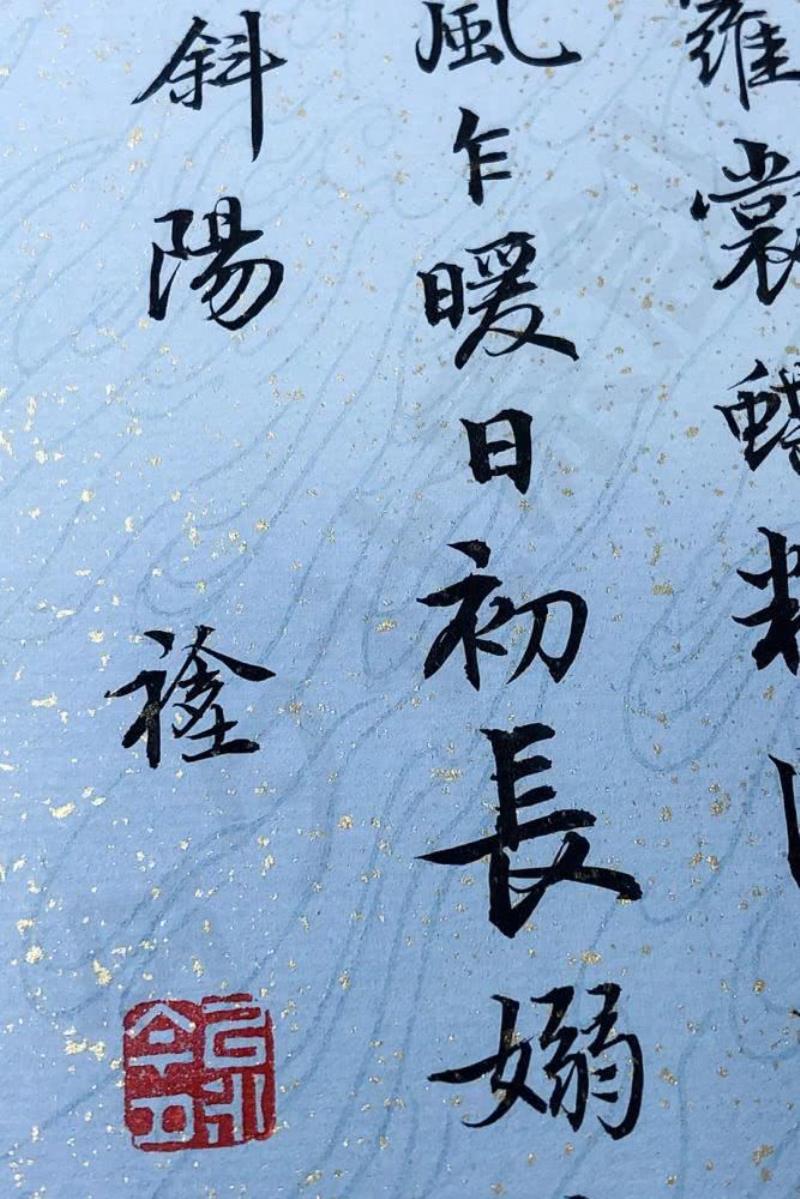 羅裳蟬
風乍暖日初長嫋
斜陽